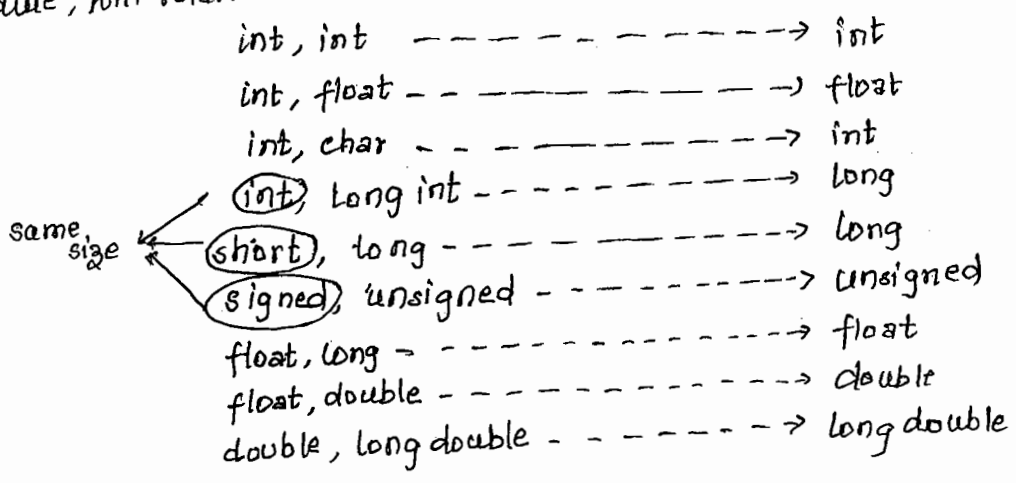 int, int ----------> int
int, float ----------> float
int, char ----------> int
int, Long int ----------> Long
same size
short, long ----------> Long
signed, unsigned ----------> unsigned
float, long ----------> float
float, double ----------> double
double, long double ----------> Long double